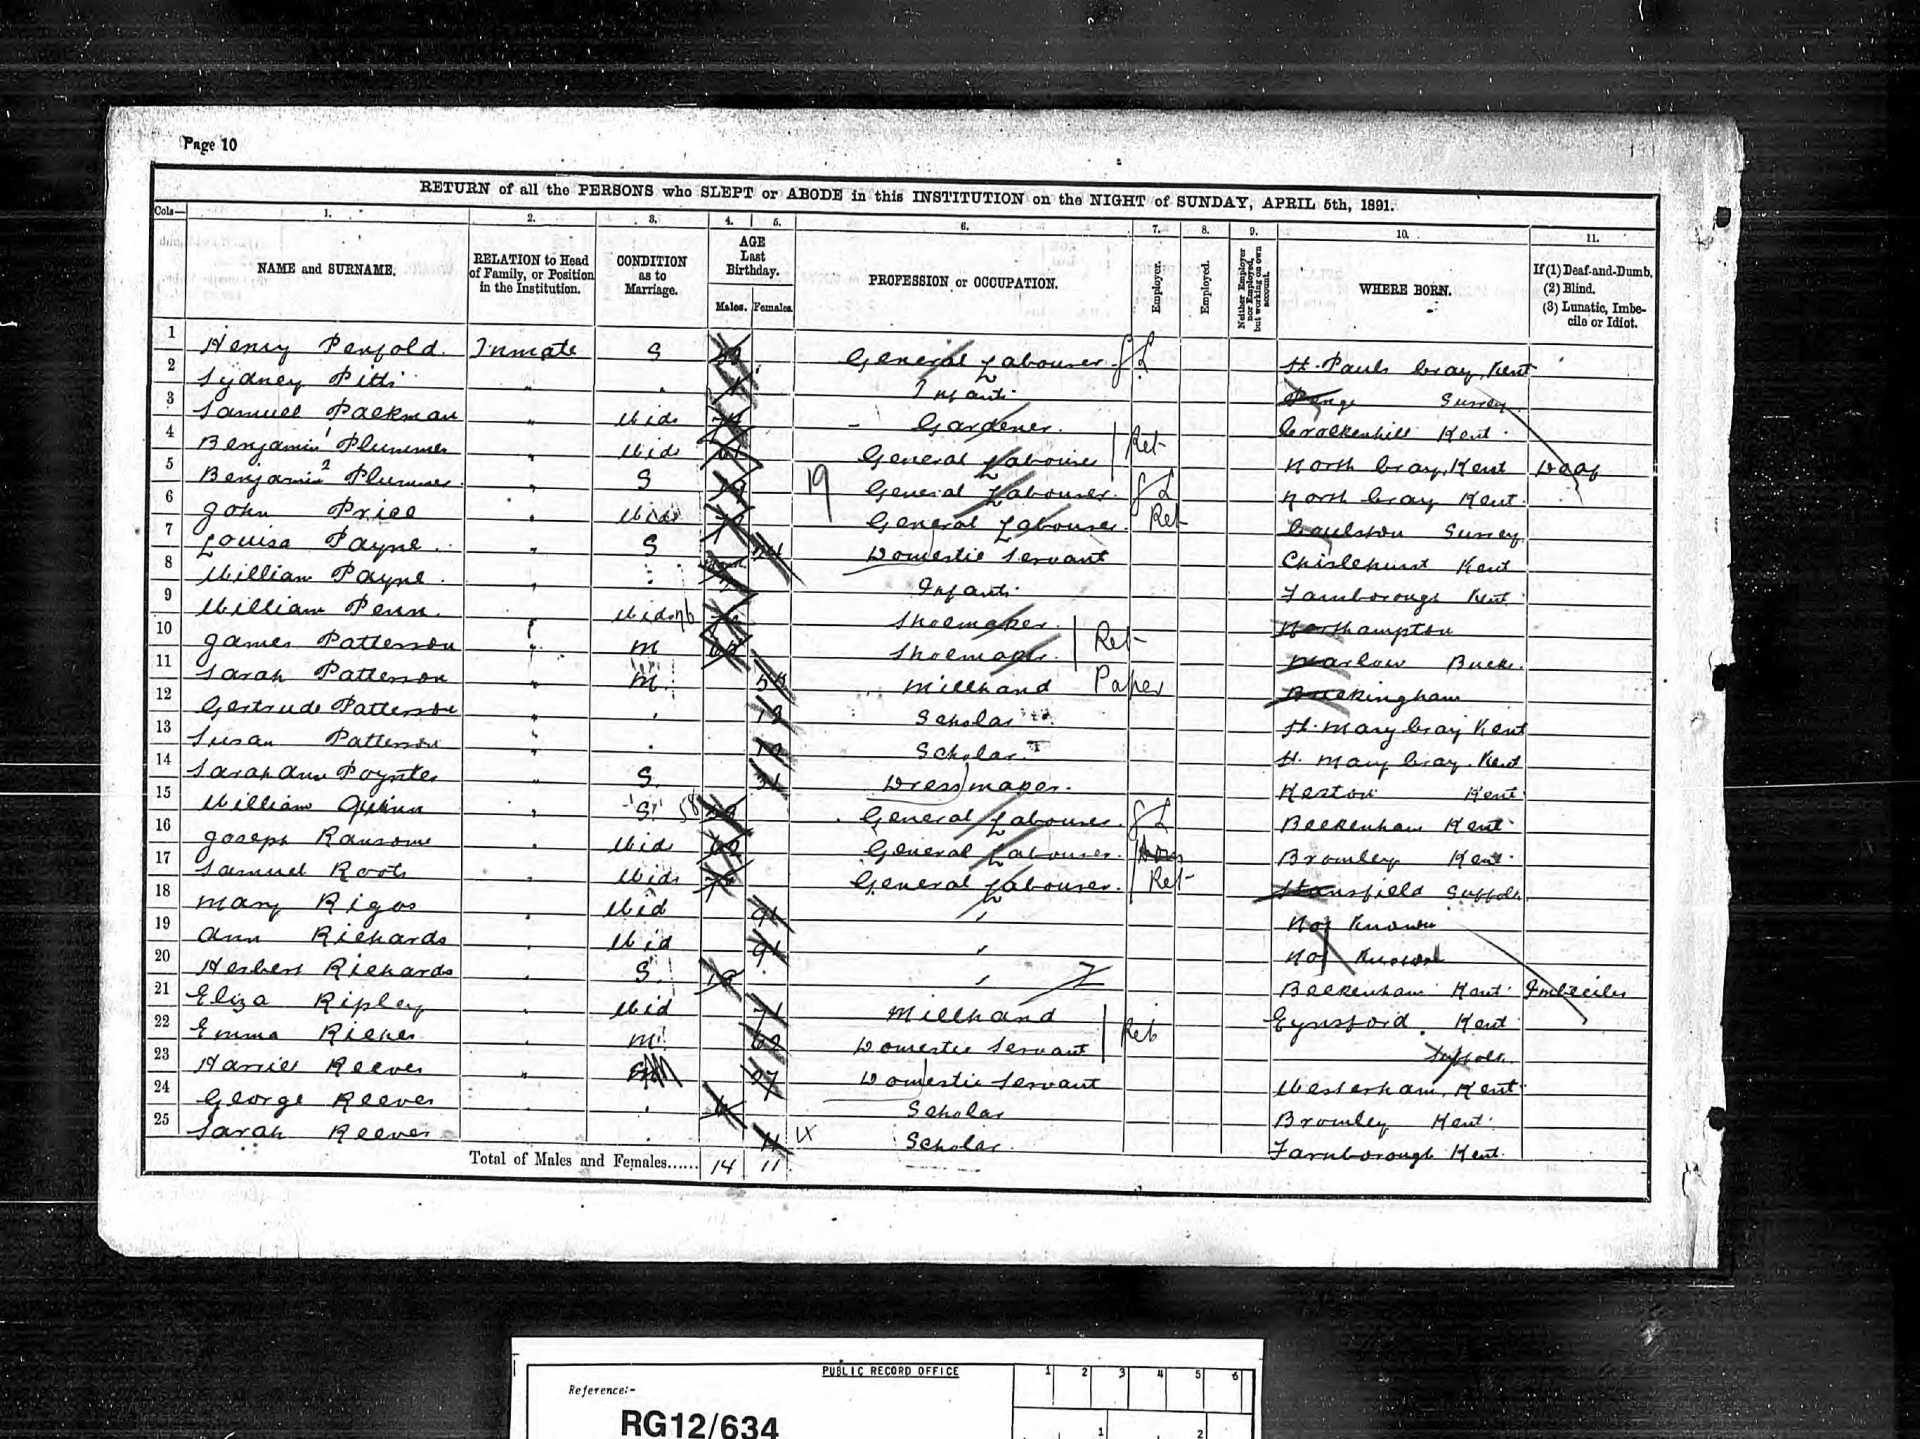 Page 10
RETURN of all the PERSONS who SLEPT or ABODE in this INSTITUTION on the NIGHT of SUNDAY, APRIL 5th, 1891.
Cols— 1. 2. 3. 4. 5. 6. 7. 8. 9. 10. 11.
NAME and SURNAME. RELATION to Head of Family, or Position in the Institution. CONDITION as to Marriage. AGE Last Birthday. Males. Females. PROFESSION or OCCUPATION. Employer. Employed. Neither Employer nor Employed, but working on own account. WHERE BORN. If (1) Deaf-and-Dumb. (2) Blind. (3) Lunatic, Imbecile or Idiot.
1 Henry Penfold Inmate S General Labourer G L St. Pauls Cray, Kent
2 Sydney Pitts " Infant Penge Surrey
3 Samuel Packman " Wid Gardener Crockenhill Kent
4 Benjamin 1 Plummer " Wid General Labourer Ret North Cray, Kent Deaf
5 Benjamin 2 Plummer " S 19 General Labourer G L North Cray Kent
6 John Price " Wid General Labourer Ret Surrey
7 Louisa Payne " S Domestic Servant Chislehurst Kent
8 William Payne " Infant Farnborough Kent
9 William Penn " Wid 76 Shoemaker Northampton
10 James Patterson " M Shoemaker Ret Marlow Bucks
11 Sarah Patterson " M Millhand Paper Buckingham
12 Gertrude Patterson " 12 Scholar St. Mary Cray Kent
13 Susan Patterson " 10 Scholar St. Mary Cray Kent
14 Sarah Ann Poynter " S 31 Dressmaker Keston Kent
15 William Quinn " S 58 General Labourer G L Beckenham Kent
16 Joseph Ransome " Wid General Labourer Bromley Kent
17 Samuel Roots " Wid General Labourer Ret Stansfield Suffolk
18 Mary Rigos " Wid 91 " Not Known
19 Ann Richards " Wid 91 " Not Known
20 Herbert Richards " S " Beckenham Kent Imbecile
21 Eliza Ripley " Wid 71 Millhand Eynsford Kent
22 Emma " M 62 Domestic Servant Ret Suffolk
23 Harriet Reeves " 27 Domestic Servant Westerham, Kent
24 George Reeves " 6 Scholar Bromley Kent
25 Sarah Reeves " 4 Scholar Farnborough Kent
Total of Males and Females...... 14 11
PUBLIC RECORD OFFICE 1 2 3 4 5 6
Reference:-
RG12/634 1 2